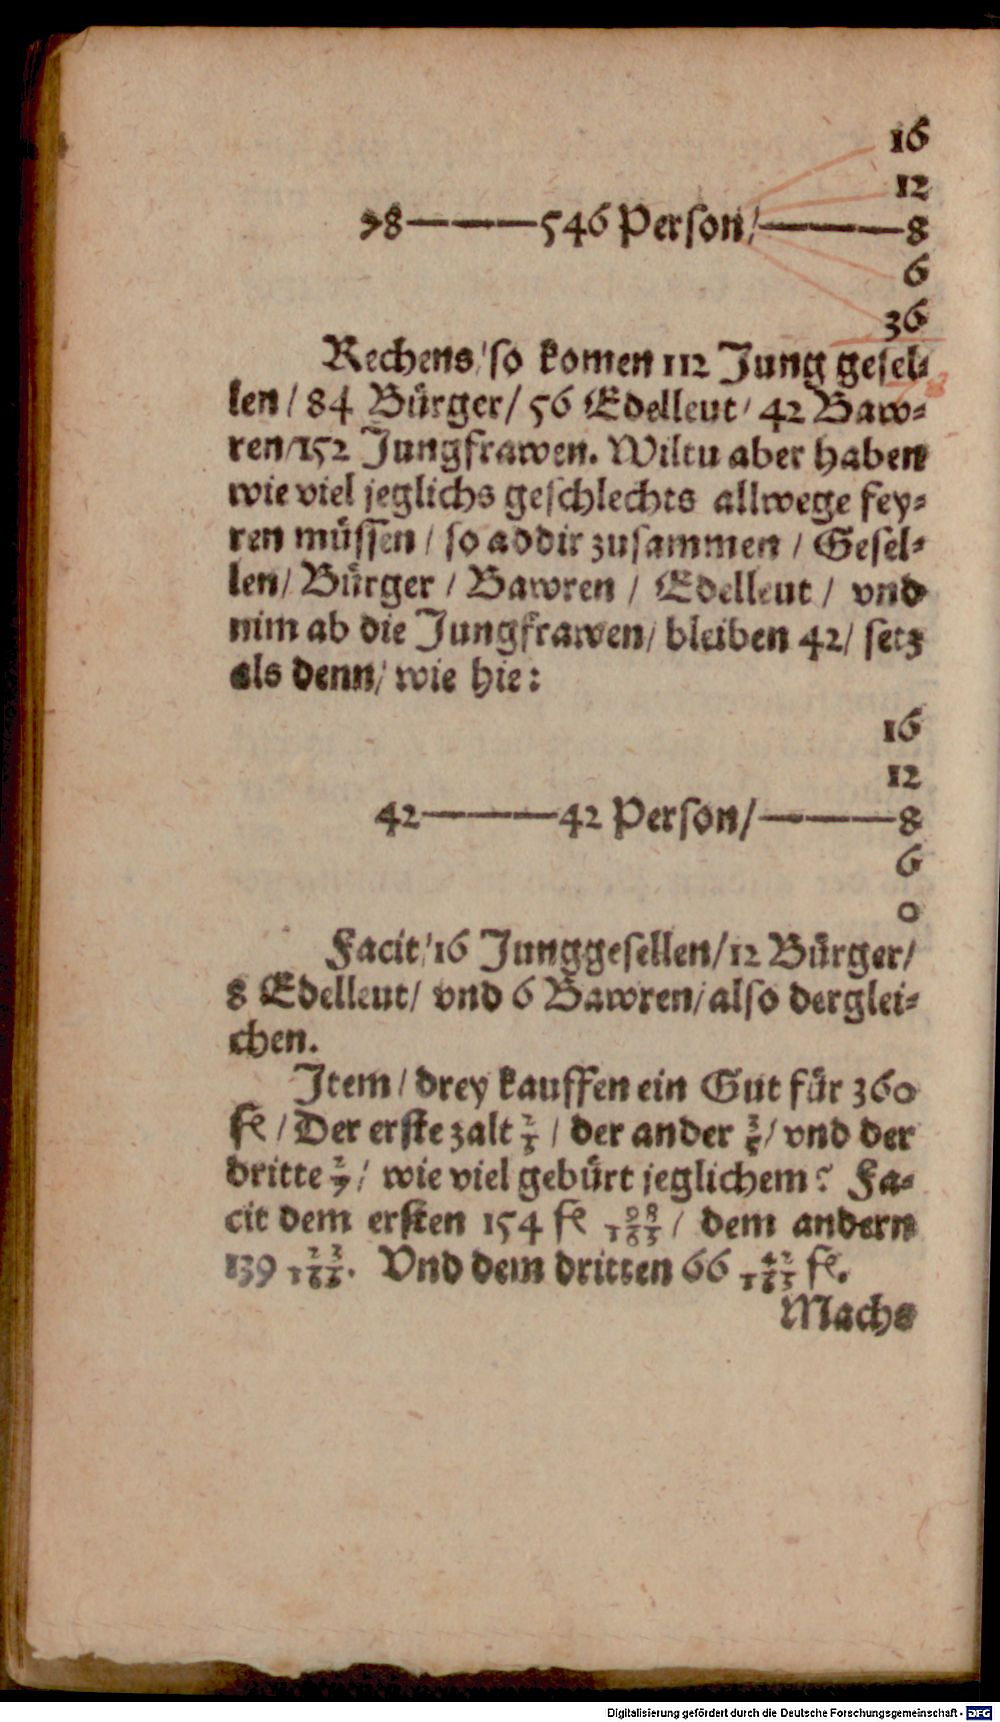 16
12
78———546 Person/———8
6
36
Rechens/so komen 112 Jung gesel⸗
len/84 Bürger/56 Edelleut/42 Baw⸗
ren/152 Jungfrawen. Wiltu aber haben
wie viel jeglichs geschlechts allwege fey⸗
ren müssen/so addir zusammen/Gesel⸗
len/Bürger/Bawren/Edelleut/vnd
nim ab die Jungfrawen/bleiben 42/setz
als denn/wie hie:
16
12
42———42 Person/———8
6
0
Facit/16 Junggesellen/12 Bürger/
8 Edelleut/vnd 6 Bawren/also derglei⸗
chen.
Item/drey kauffen ein Gut für 360
fl/Der erste zalt 2/3/der ander 3/5/vnd der
dritte 2/7/wie viel gebürt jeglichem? Fa⸗
cit dem ersten 154 fl 98/163/dem andern
139 23/163. Vnd dem dritten 66 42/163 fl.
Machs
Digitalisierung gefördert durch die Deutsche Forschungsgemeinschaft - DFG